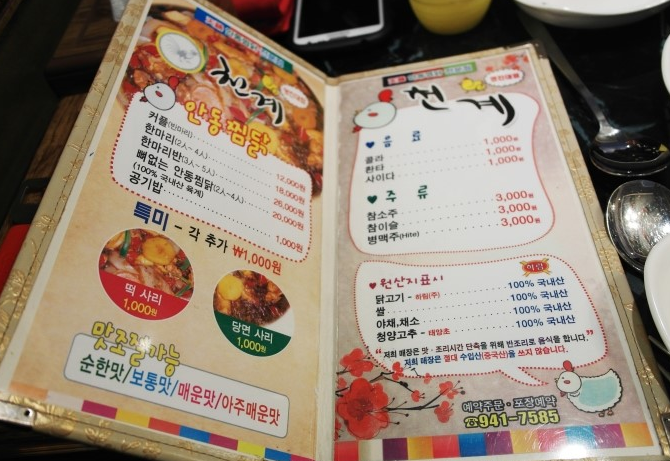 천계
안동찜닭
커플(반마리) 12,000원
한마리(2人~4人) 18,000원
한마리반(3人~5人) 26,000원
뼈없는 안동찜닭(2人~4人) 20,000원
(100% 국내산 육계)
공기밥 1,000원
특미 - 각 추가 ₩1,000원
떡 사리
1,000원
당면 사리
1,000원
맛조절가능
순한맛/보통맛/매운맛/아주매운맛
천계
음료
콜라 1,000원
환타 1,000원
사이다 1,000원
주류
참소주 3,000원
참이슬 3,000원
병맥주(Hite) 3,000원
원산지표시
하림
닭고기 - 하림(주) 100% 국내산
쌀 100% 국내산
야채,채소 100% 국내산
청양고추 - 태양초 100% 국내산
"저희 매장은 맛·조리시간 단축을 위해 반조리로 음식을 합니다."
저희 매장은 절대 수입산(중국산)을 쓰지 않습니다.
예약주문·포장예약
☎941-7585